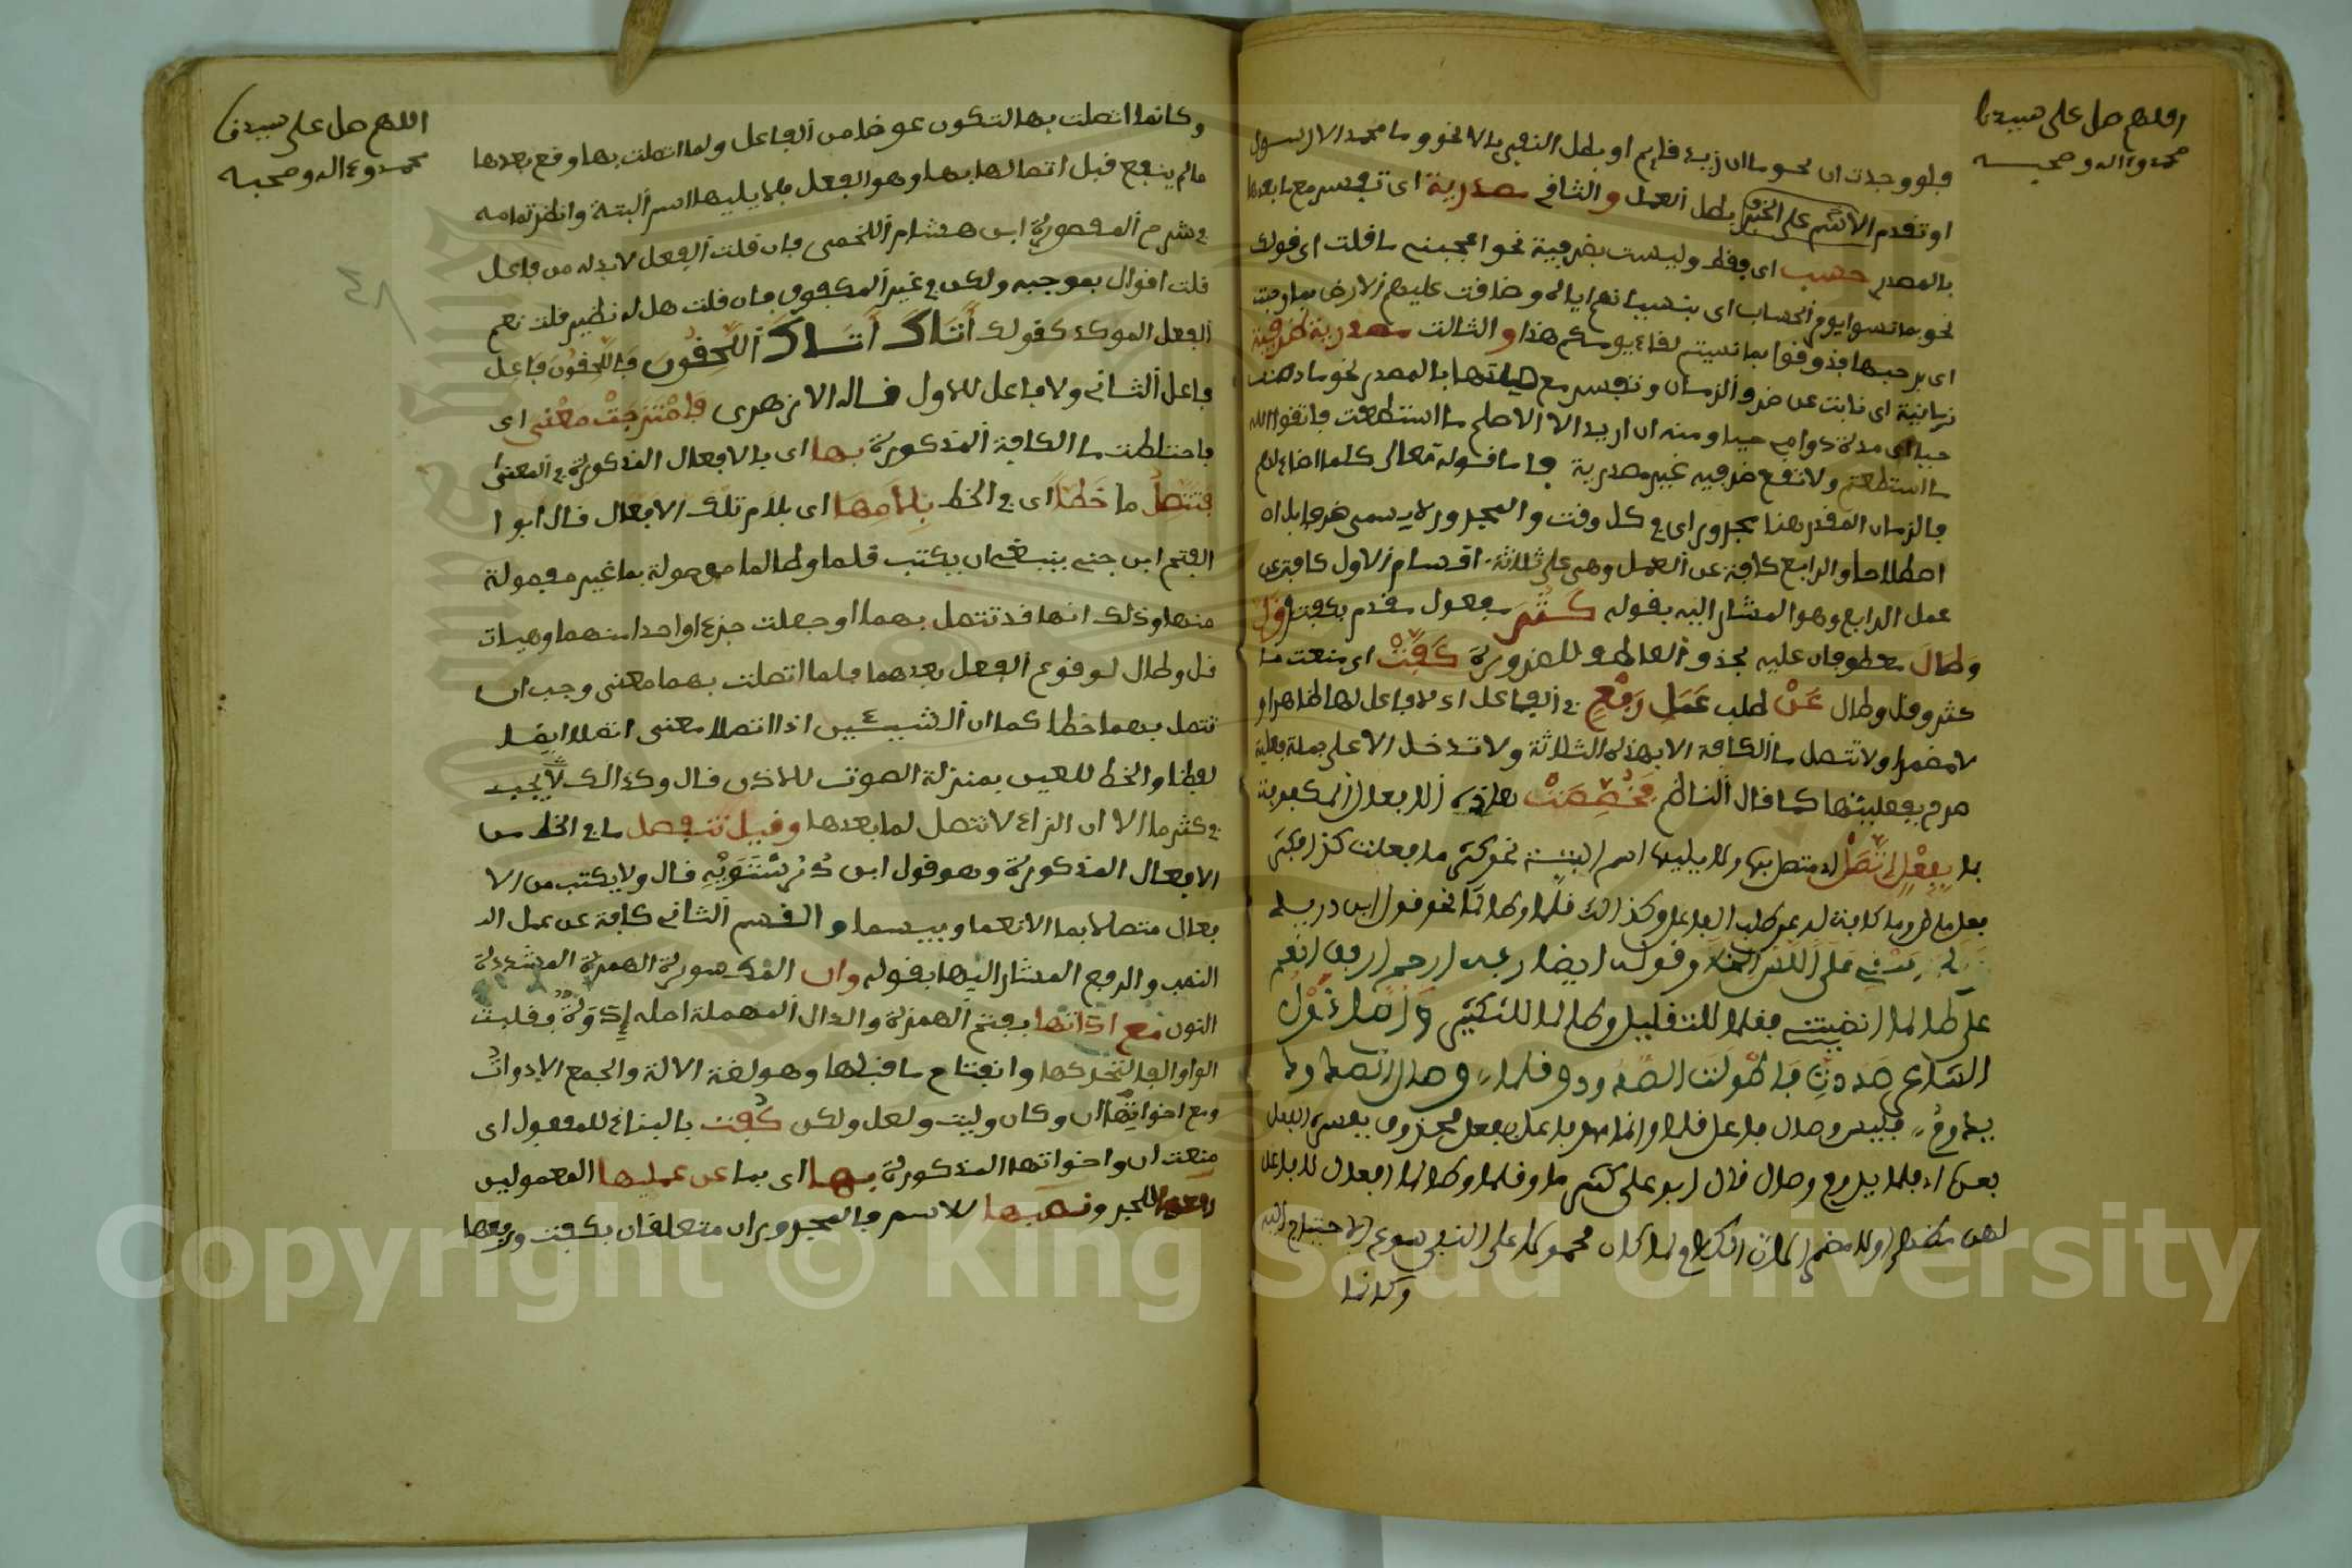 اللهم صل على سيدنا
محمد وءاله وصحبه
فلو وجدت ان نحو ما ان زيد قايم او بطل النفي بالا نحو وما محمد الا رسول
او تقدم الاسم على الخبر بطل العمل والثاني مصدرية اي تفسر مع ما بعدها
بالمصدر حسب اي فقط وليست بضرفية نحو اعجبني ما قلت اي قولك
نحو بما نسوا يوم الحساب اي بنسيانهم اياه وضاقت عليهم الارض بما رحبت
اي برحبها فذوقوا بما نسيتم لقاء يومكم هذا والثالث مصدرية ظرفية
زمانية اي نابت عن ضرف الزمان وتفسر مع صلتها بالمصدر نحو ما دمت
حيا اي مدة دوامي حيا ومنه ان اريد الا الاصلح ما استطعت فاتقوا الله
ما استطعتم ولا تقع ضرفيه غير مصدرية فاما قوله تعالى كلما اضاء لهم
فالزمان المقدر هنا مجرور اي في كل وقت والمجرور لا يسمى ضرفا
اصطلاحا والرابع كافة عن العمل وهي على ثلاثة اقسام الاول كافة عن
عمل الرابع وهو المشار اليه بقوله كثر مفعول مقدم بكفت وقل
وطال معطوفان عليه بحذف العاطف للضرورة كفت اي منعت ما
كثر وقل وطال عن طلب عمل رفع في الفاعل اي لا فاعل لها ظاهرا و
لا مضمرا ولا تتصل ما الكافة الا بهذه الثلاثة ولا تدخل الا على جملة فعلية
صرح بفعليتها كما قال الناظم فخصصت هاذه الافعال المكفوفة
بما بفعل اتصل اي متصل بها ولا يليها اسم البتة نحو كثر ما فعلت كذا فكثر
فعل ماض وما كافة له عن طلب الفاعل وكذالك قلما وطالما نحو قول ابن دريد
وقوله ايضا
على طالما انضيته فقلما للتقليل وطالما للتكثير واما قول
الشاعر صددت فاطولت الصدود وقلما وصال الصدود
يدوم فليس وصال فاعل قلما وانما هو فاعل بفعل محذوف يفسره الفعل
بعده اي قلما يدوم وصال قال ابو على كثر ما وقلما وطالما افعال لا فاعل
لهن مظهرا ولا مضمرا لان الكلام لما كان محمولا على النفي سوغ الاحتياج اليه
وكانما
اللهم صل على سيدنا
محمد وءاله وصحبه
وكانما اتصلت بها لتكون عوضا من الفاعل ولما اتصلت بها وقع بعدها
ما لم ينفع قبل اتصالها بها وهو الفعل فلا يليها اسم البتة وانظر تمامه
في شرح المقصورة ابن هشام اللخمي فان قلت الفعل لا بد له من فاعل
قلت اقوال بموجبه ولكن في غير المكفوف فان قلت هل له نظير قلت نعم
الفعل الموكد كقولك أتاك أتاك اللاحقون فاللاحقون فاعل
فاعل الثاني ولا فاعل للاول قاله الازهري فامتزجت معنى اي
فاختلطت ما الكافة المذكورة بها اي بالافعال المذكورة في المعنى
فتتصل ما خطا اي في الخط بلامها اي بلام تلك الافعال قال ابوا
الفتح ابن جني ينبغي ان يكتب قلما وطالما موصولة بما غير مفصولة
منها وذلك انها قد تتصل بهما او جعلت جزءا واحدا منهما وهيات
قل وطال لوقوع الفعل بعدهما فلما اتصلت بهما معنى وجب ان
تتصل بهما خطا كما ان الشيئين اذا اتصلا معنى اتصلا ايضا
لفظا والخط للعين بمنزلة الصوت للاذن قال وكذالك لا يجب
في كثر ما الا ان الراء لا تتصل لما بعدها وقيل تنفصل ما في الخط من
الافعال المذكورة وهو قول ابن درستويه قال ولا يكتب من الا
فعال متصلا بما الا نعما وبيسما والقسم الثاني كافة عن عمل ال
النصب والرفع المشار اليها بقوله وان المكسورة الهمزة المشددة
النون مع اداتها بفتح الهمزة والدال المهملة اصله إدوة فقلبت
الواو الفا لتحركها وانفتاح ما قبلها وهو لغة الالة والجمع الادوات
ومع اخواتها ان وكان وليت ولعل ولكن كفت بالبناء للمفعول اي
منعت ان واخواتها المذكورة بها اي بما عن عملها المعمولين
رفعها للخبر ونصبها للاسم فالمجروران متعلقان بكفت ورفعها